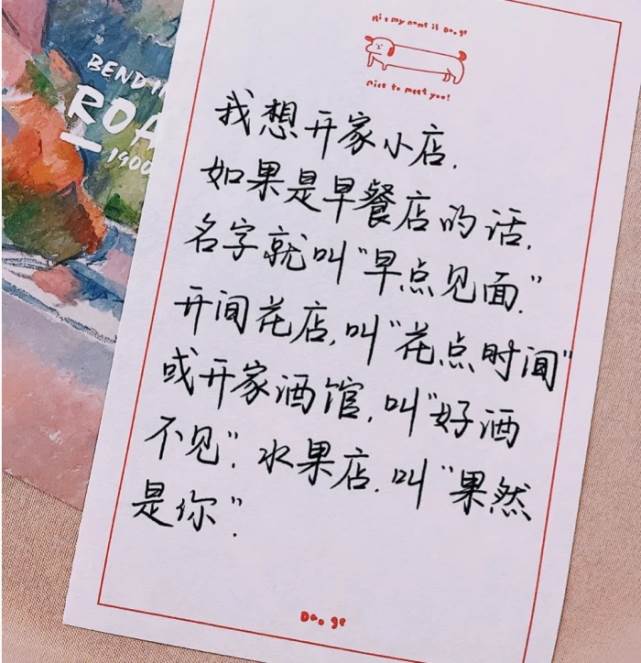 BEND
ROA
1900
Hi & my name is Dao ge
Nice to meet you!
我想开家小店.
如果是早餐店的话,
名字就叫“早点见面.”
开间花店,叫“花点时间”
或开家酒馆,叫“好酒
不见”. 水果店.叫“果然
是你”.
Dao ge